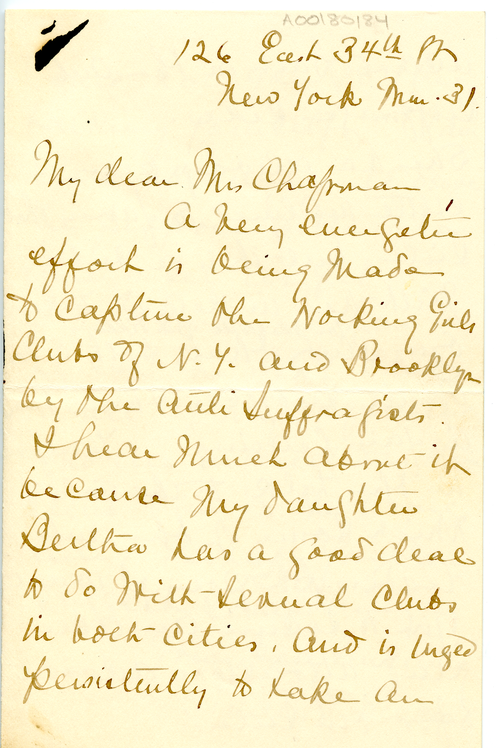 A00180184
126 East 34th St
New York Mar. 31.
My dear Mrs Chapman
A very energetic
effort is being made
to capture the Working Girls
Clubs of N.Y. and Brooklyn
by the Anti Suffragists.
I hear much about it
because my daughter
Bertha has a good deal
to do with several clubs
in both cities, and is urged
persistently to take an